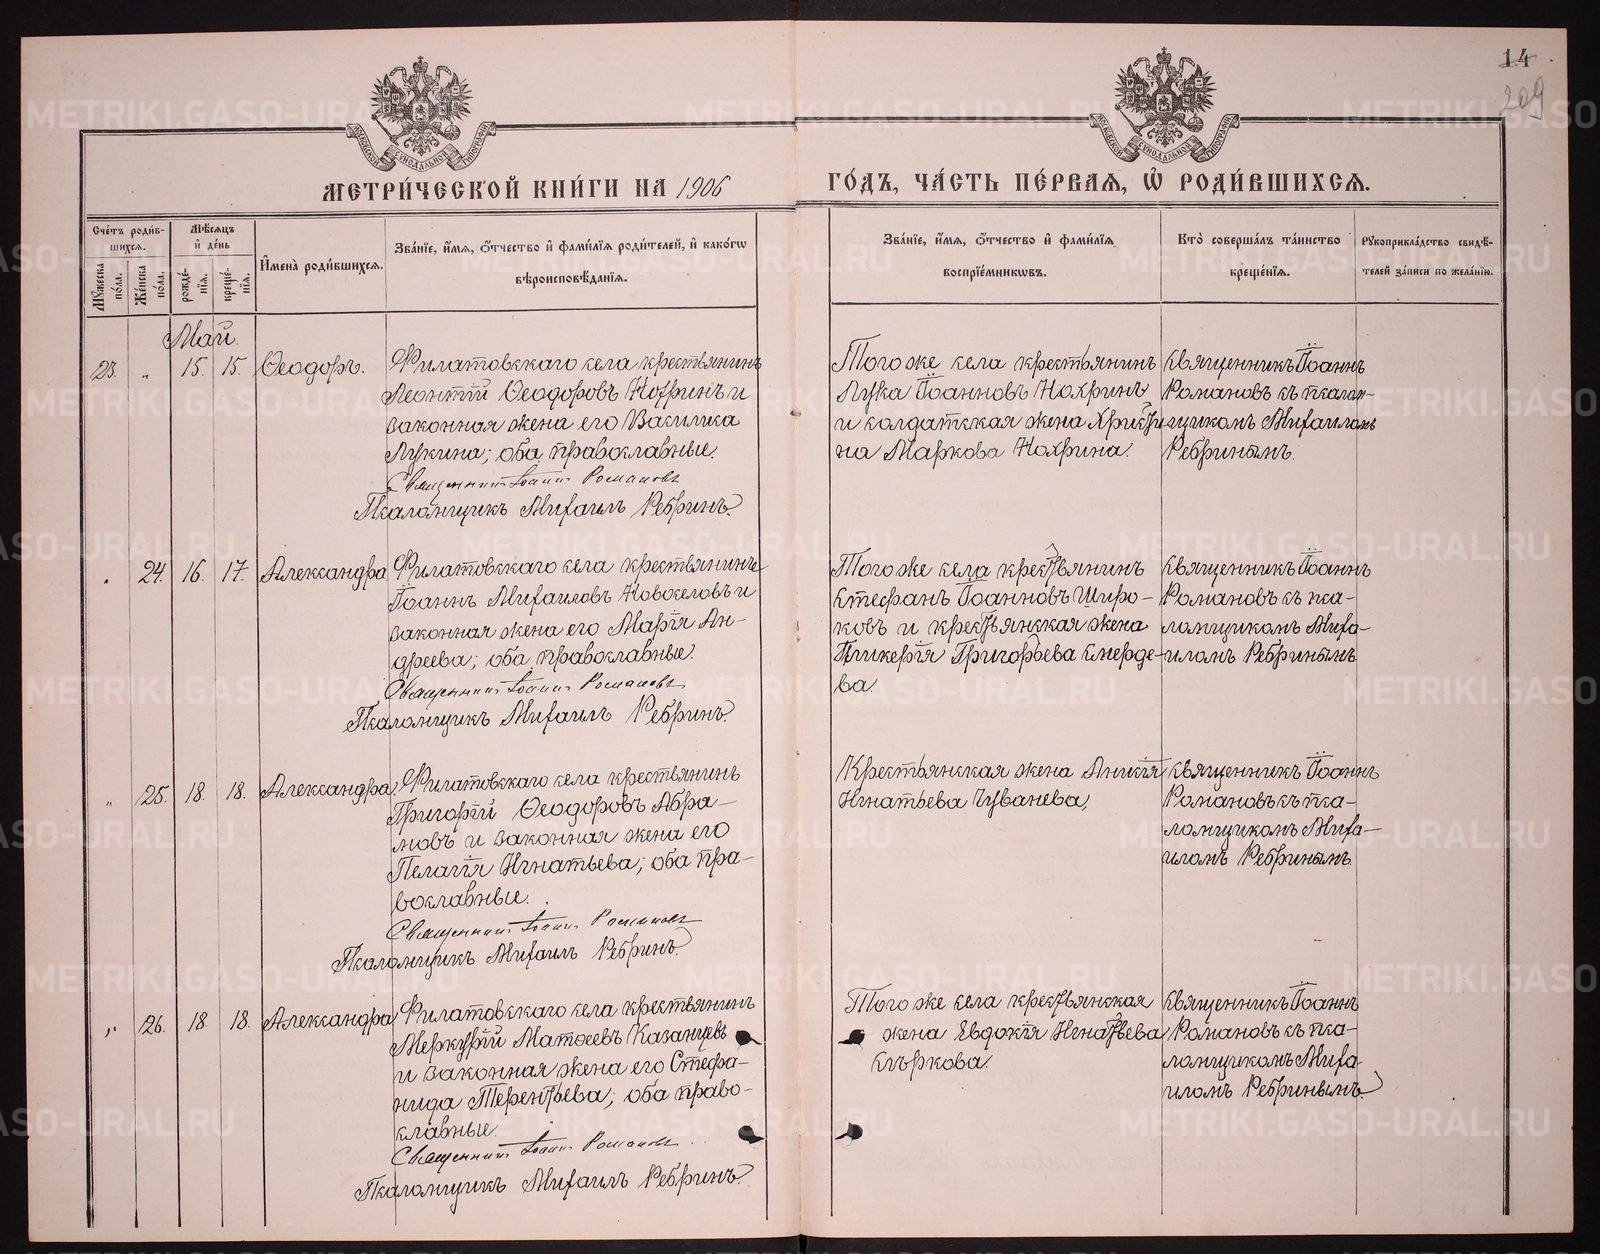 14
209
МОСКОВСКОЙ СѴНОДАЛЬНОЙ ТИПОГРАФІИ
МОСКОВСКОЙ СѴНОДАЛЬНОЙ ТИПОГРАФІИ
МЕТРИ́ЧЕСКОЙ КНИ́ГИ НА 1906
ГО́ДЪ, ЧА́СТЬ ПЕ́РВАЯ, Ѡ РОДИ́ВШИХСѦ.
Сче́тъ роди́в-
шихсѧ.
Мꙋ́жеска по́ла.
Же́нска по́ла.
Мѣ́сѧцъ
и҆ де́нь
рожде́-
нїѧ.
креще́-
нїѧ.
И҆мена̀ роди́вшихсѧ.
Зва́нїе, и҆́мѧ, ѻ҆́тчество и҆ фами́лїѧ роди́телей, и҆ како́гѡ
вѣроисповѣ́данїѧ.
Зва́нїе, и҆́мѧ, ѻ҆́тчество и҆ фами́лїѧ
воспрїе́мникѡвъ.
Кто̀ соверша́лъ та́инство
креще́нїѧ.
Рꙋкоприкла́дство свидѣ́-
телей за́писи по жела́нїю.
Май.
23. „ 15. 15. Ѳеодоръ.
Филатовскаго села крестьянинъ
Леонтій Ѳеодоровъ Нохринъ и
законная жена его Василиса
Лукина; оба православные.
Священникъ Іоаннъ Романовъ
Псаломщикъ Михаилъ Ребринъ.
Того же села крестьянин
Лука Іоанновъ Нохринъ
и солдатская жена Христи-
на Маркова Нохрина.
Священникъ Іоаннъ
Романовъ съ псалом-
щикомъ Михаиломъ
Ребринымъ.
„ 24. 16. 17. Александра
Филатовскаго села крестьянинъ
Іоаннъ Михаиловъ Новоселовъ и
законная жена его Марія Ан-
дреева; оба православные.
Священникъ Іоаннъ Романовъ
Псаломщикъ Михаилъ Ребринъ.
Того же села крестьянинъ
Стефанъ Іоанновъ Широ-
ковъ и крестьянская жена
Гликерія Григорьева Смерде-
ва.
Священникъ Іоаннъ
Романовъ съ пса-
ломщикомъ Миха-
иломъ Ребринымъ
„ 25. 18. 18. Александра
Филатовскаго села крестьянинъ
Григорій Ѳеодоровъ Абра-
мовъ и законная жена его
Пелагія Игнатьева; оба пра-
вославные.
Священникъ Іоаннъ Романовъ
Псаломщикъ Михаилъ Ребринъ.
Крестьянская жена Аникія
Игнатьева Чуванева,
Священникъ Іоаннъ
Романовъ съ пса-
ломщикомъ Миха-
иломъ Ребринымъ
„ 26. 18. 18. Александра
Филатовскаго села крестьянинъ
Меркурій Матѳеевъ Казанцевъ
и законная жена его Стефа-
нида Терентьева; оба право-
славные.
Священникъ Іоаннъ Романовъ
Псаломщикъ Михаилъ Ребринъ.
Того же села крестьянская
жена Евдокія Игнатьева
Сыркова.
Священникъ Іоаннъ
Романовъ съ пса-
ломщикомъ Миха-
иломъ Ребринымъ.
METRIKI.GASO-URAL.RU